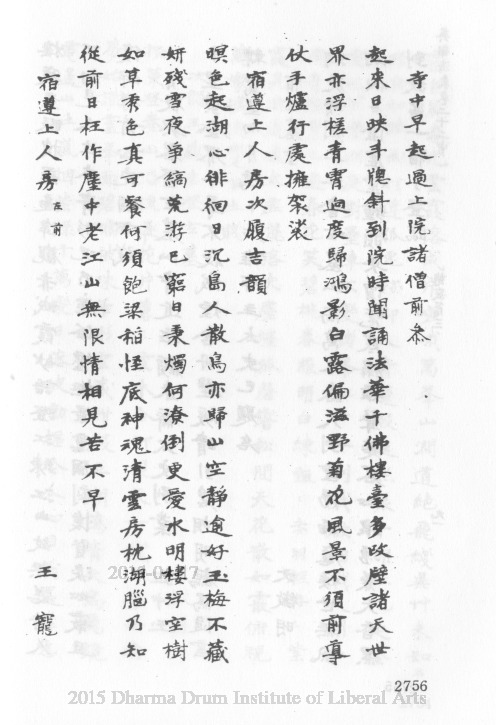 寺中早起過上院諸僧前參
起來日映半牕斜到院時聞誦法華千佛樓臺多改壁諸天世
界亦浮槎青霄迥度歸鴻影白露偏滋野菊花風景不須前導
仗手爐行處擁袈裟
宿遵上人房次履吉韻
暝色起湖心徘徊日沉島人散鳥亦歸山空靜逾好玉梅不藏
妍殘雪夜爭縞荒游已窮日秉燭何潦倒更愛水明樓浮空樹
如草秀色真可餐何須飽梁稻怪底神魂清雲房枕湖腦乃知
從前日枉作塵中老江山無限情相見苦不早
宿遵上人房 王寵
2756
2015 Dharma Drum Institute of Liberal Arts